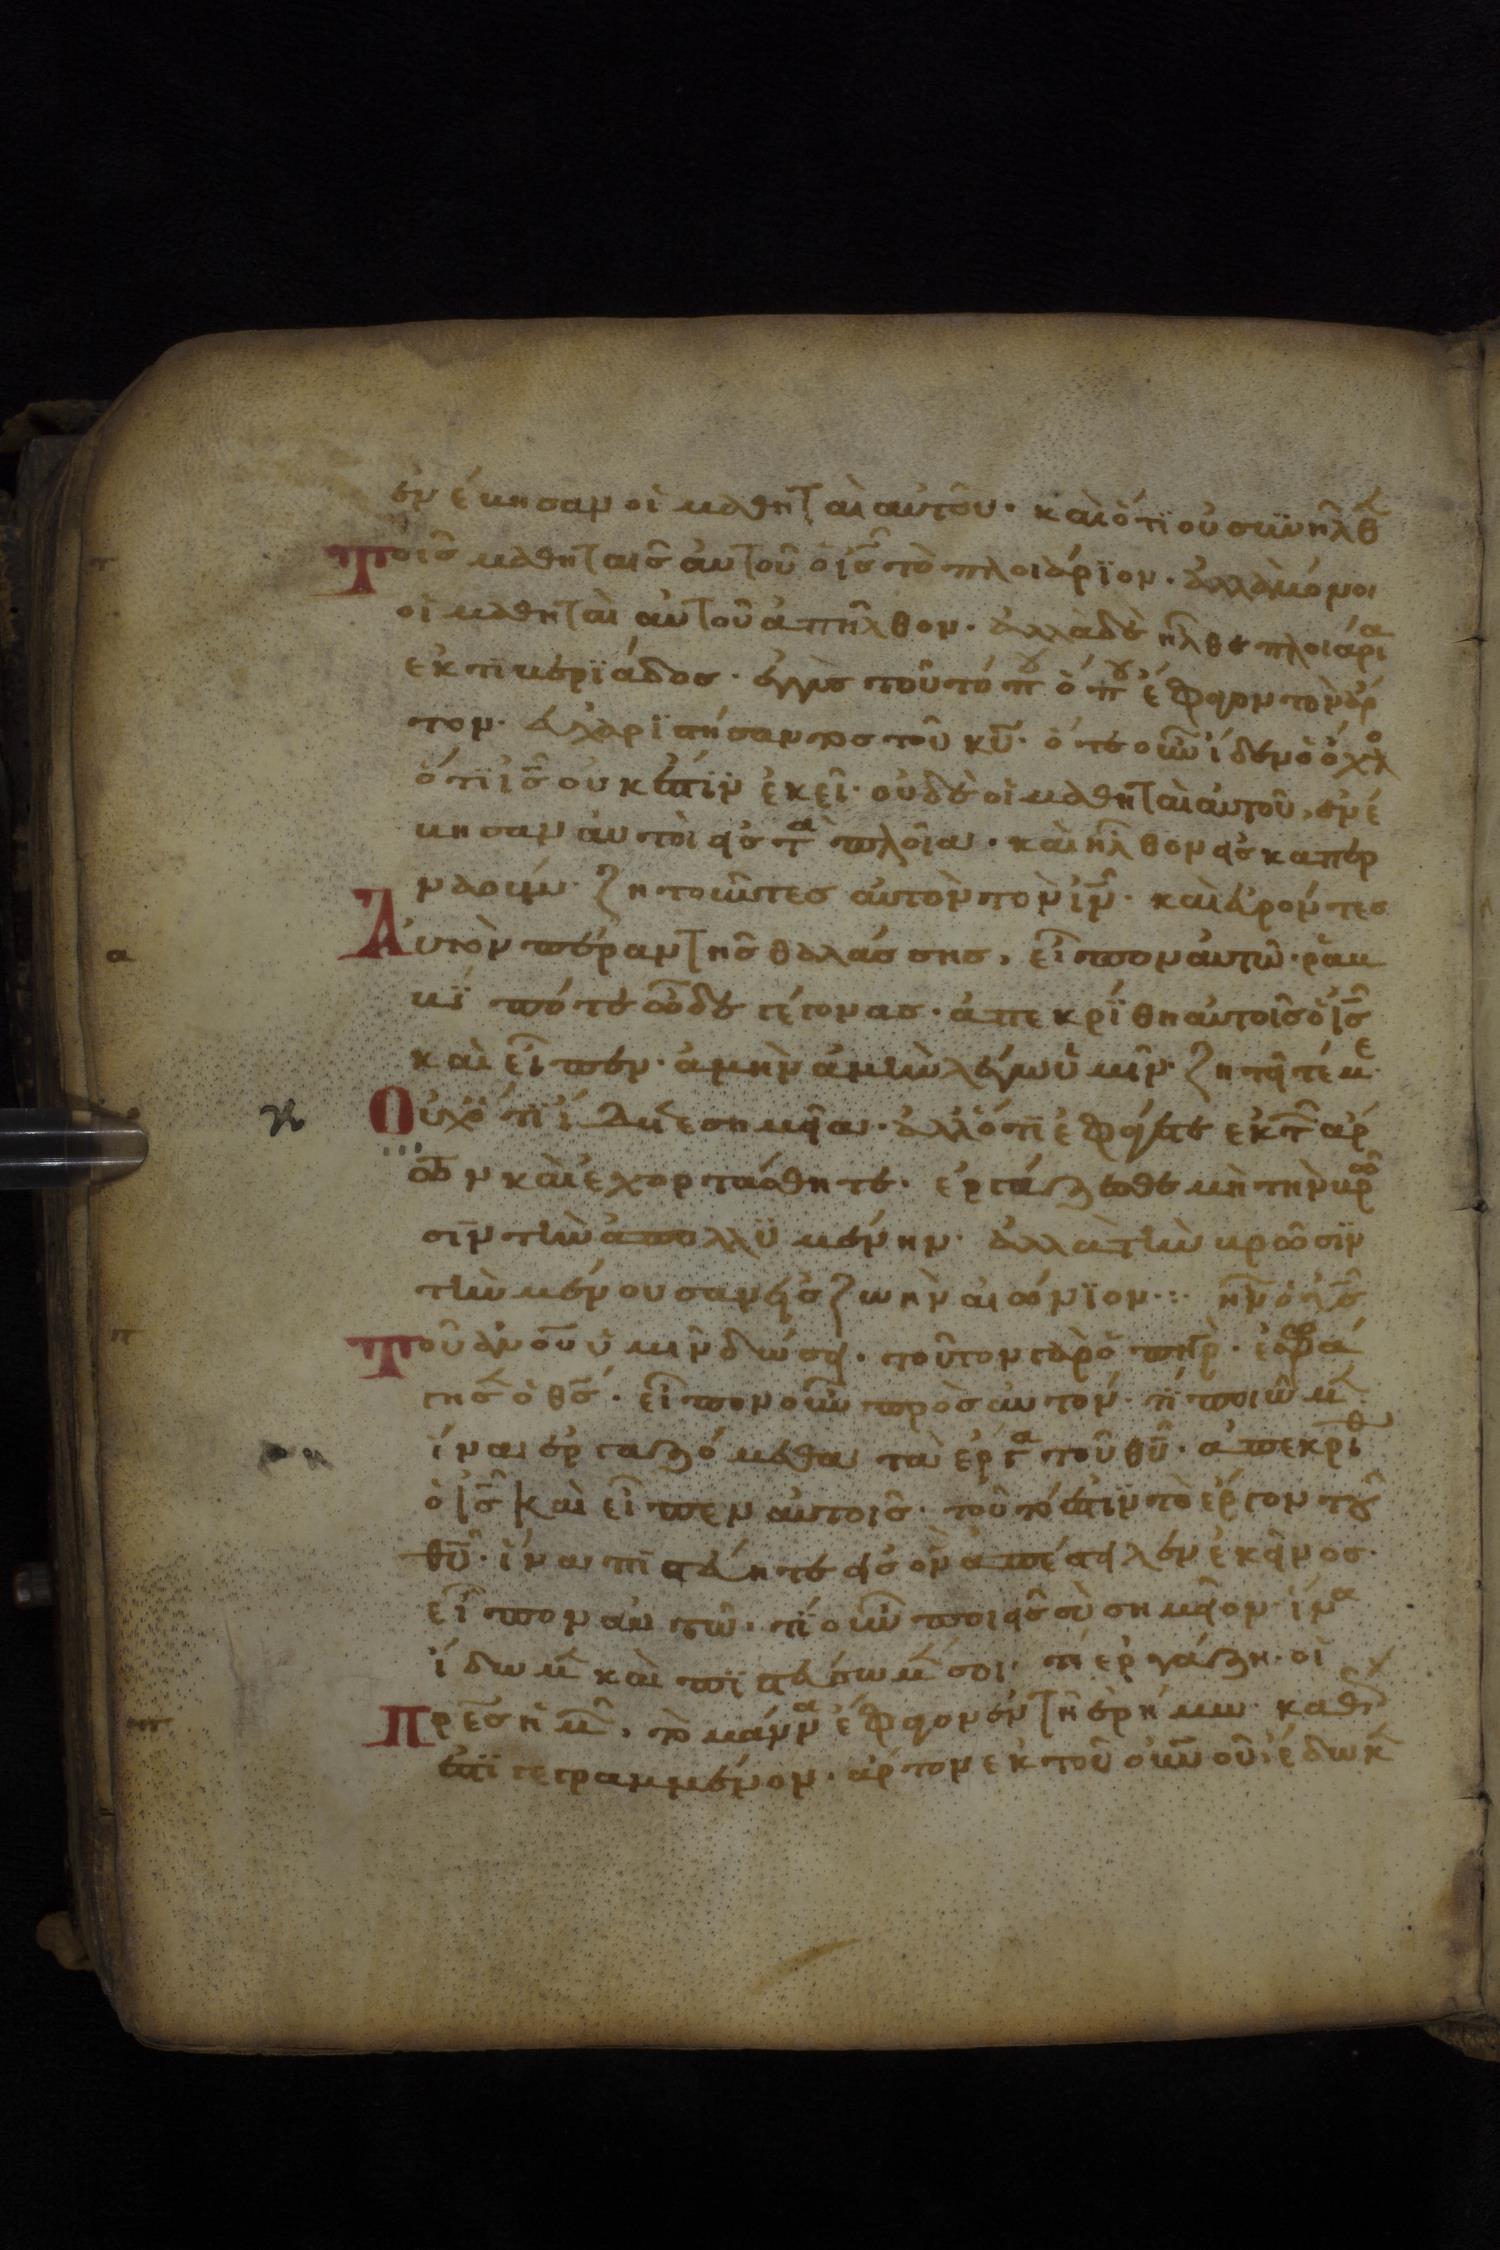 ἐνέκησαν οἱ μαθηταὶ αὐτοῦ· καὶ ὅτι οὐ συνῆλθ
τοῖς μαθηταῖς αὐτοῦ ὁ ἰς τὸ πλοιάριον· ἀλλὰ μόνοι
οἱ μαθηταὶ αὐτοῦ ἀπῆλθον· ἀλλὰ δὲ ἦλθε πλοιάρια
ἐκ τιβεριάδος· ἐγγὺς τοῦ τόπου ὅπου ἔφαγον τὸν ἄρ
τον· εὐχαριστήσαντος τοῦ κυ· ὅτε οὖν ἴδεν ὁ ὄχλο
ὅτι ἰς οὐκ ἔστιν ἐκεῖ· οὐδὲ οἱ μαθηταὶ αὐτοῦ, ἐνέ
βησαν αὐτοὶ εἰς τὰ πλοῖα· καὶ ἦλθον εἰς καπερ
ναούμ· ζητοῦντες αὐτὸν τὸν ἰν· καὶ εὑρόντες
Αὐτὸν πέραν τῆς θαλάσσης, εἶπον αὐτῷ· ραβ
βὶ πότε ὧδε γέγονας· ἀπεκρίθη αὐτοῖς ὁ ἰς
καὶ εἶπεν· ἀμὴν ἀμὴν λέγω ὑμῖν· ζητεῖτέ με
Οὐχ ὅτι ἴδετε σημεῖα· ἀλλ' ὅτι ἐφάγετε ἐκ τ ἄρ
των καὶ ἐχορτάσθητε· ἐργάζεσθε μὴ τὴν βρῶ
σιν τὴν ἀπολλυμένην· ἀλλὰ τὴν βρῶσιν
τὴν μένουσαν εἰς ζωὴν αἰώνιον·: ἣν ὁ υς
Τοῦ ανου ὑμῖν δώσει· τοῦτον γὰρ ὁ πηρ· ἐσφρά
γησ ὁ θς· εἶπον οὖν πρὸς αὐτόν· τί ποιῶμ
ἵνα ἐργαζόμεθα τὰ ἔργα τοῦ θυ· ἀπεκρίθ
ὁ ἰς καὶ εἶπεν αὐτοῖς· τοῦτό ἐστιν τὸ ἔργον τοῦ
θυ· ἵνα πιστεύητε εἰς ὃν ἀπέστειλεν ἐκεῖνος·
εἶπον αὐτῷ· τί οὖν ποιεῖς σὺ σημεῖον· ἵνα
ἴδωμ καὶ πιστεύσωμέν σοι· τί ἐργάζη· οἱ
Πρες ἡμ, τὸ μάννα ἔφαγον ἐν τῇ ἐρήμω· καθ
ἐστι γεγραμμένον· ἄρτον ἐκ τοῦ οὐνοῦ ἔδωκ